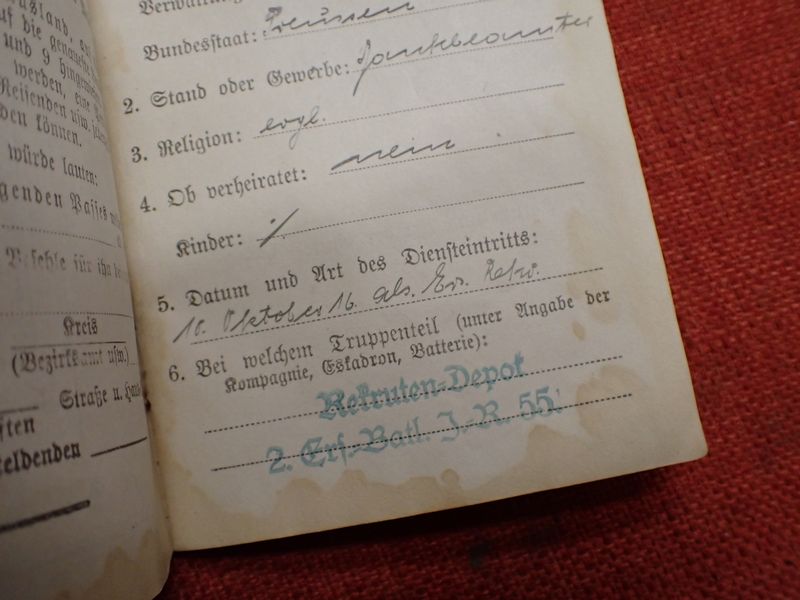 usland, ein
auf die genaueste
und 9 hingewiesen
werden, eine
Reisenden usw. jeder
den können.
würde lauten:
genden Passes
Befehle für ihn
Kreis
(Bezirksamt usw.)
Straße u. Haus
ften
eldenden
Verwaltung
Bundesstaat: Preussen
2. Stand oder Gewerbe: Bankbeamter
3. Religion: evgl.
4. Ob verheiratet: nein
Kinder: ./.
5. Datum und Art des Diensteintritts:
10. Oktober 16. als Ers. Rekr.
6. Bei welchem Truppenteil (unter Angabe der
Kompagnie, Eskadron, Batterie):
Rekruten-Depot
2. Ers.-Batl. J.-R. 55.